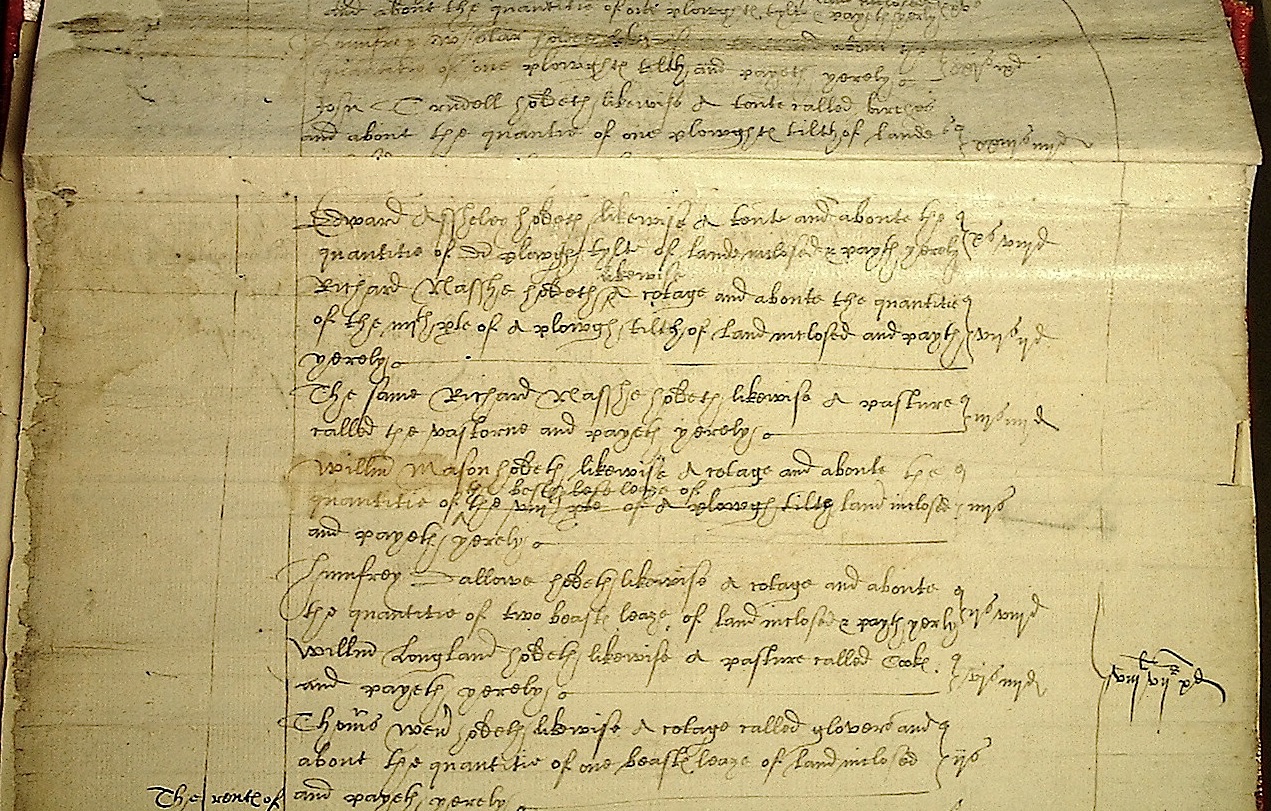 and about the quantitie of one plowghe tylth & payeth yerely
Humfrey holdeth and about the
quantitie of one plowghe tilth and payeth yerely
John Trndell holdeth likewise A tente called
and about the quantie of one plowghe tilth of lande xxiijs iiijd
Edward Assheley holdeth likewise A tente and aboute the
quantitie of di plowghe tylte of lande inclosed & payth yerely xs viijd
likewise
Richard Nasshe holdeth A cotage and aboute the quantitie
of the iiijth pte of A plowgh tilth of land inclosed and payth vijs ijd
yerely
The same Richard Nasshe holdeth likewise A pasture
called the and payeth yerely iijs iiijd
Willm Mason holdeth likewise A cotage and aboute the
beasts lease of
quantitie of the viijth pte of A plowgh tilth land inclosed iiijs
and payeth yerely
Humfrey Hallowe holdeth likewise A cotage and aboute
the quantitie of two beasts leaze of land inclosed & payth yerly ijs viijd
Willm Longland holdeth likewise A pasture called Cocks
and payeth yerely vjs iiijd
Thoms holdeth likewise A cotage called glovers and
about the quantitie of one beasts leaze of land inclosed ijs
and payeth yerely
The rente of